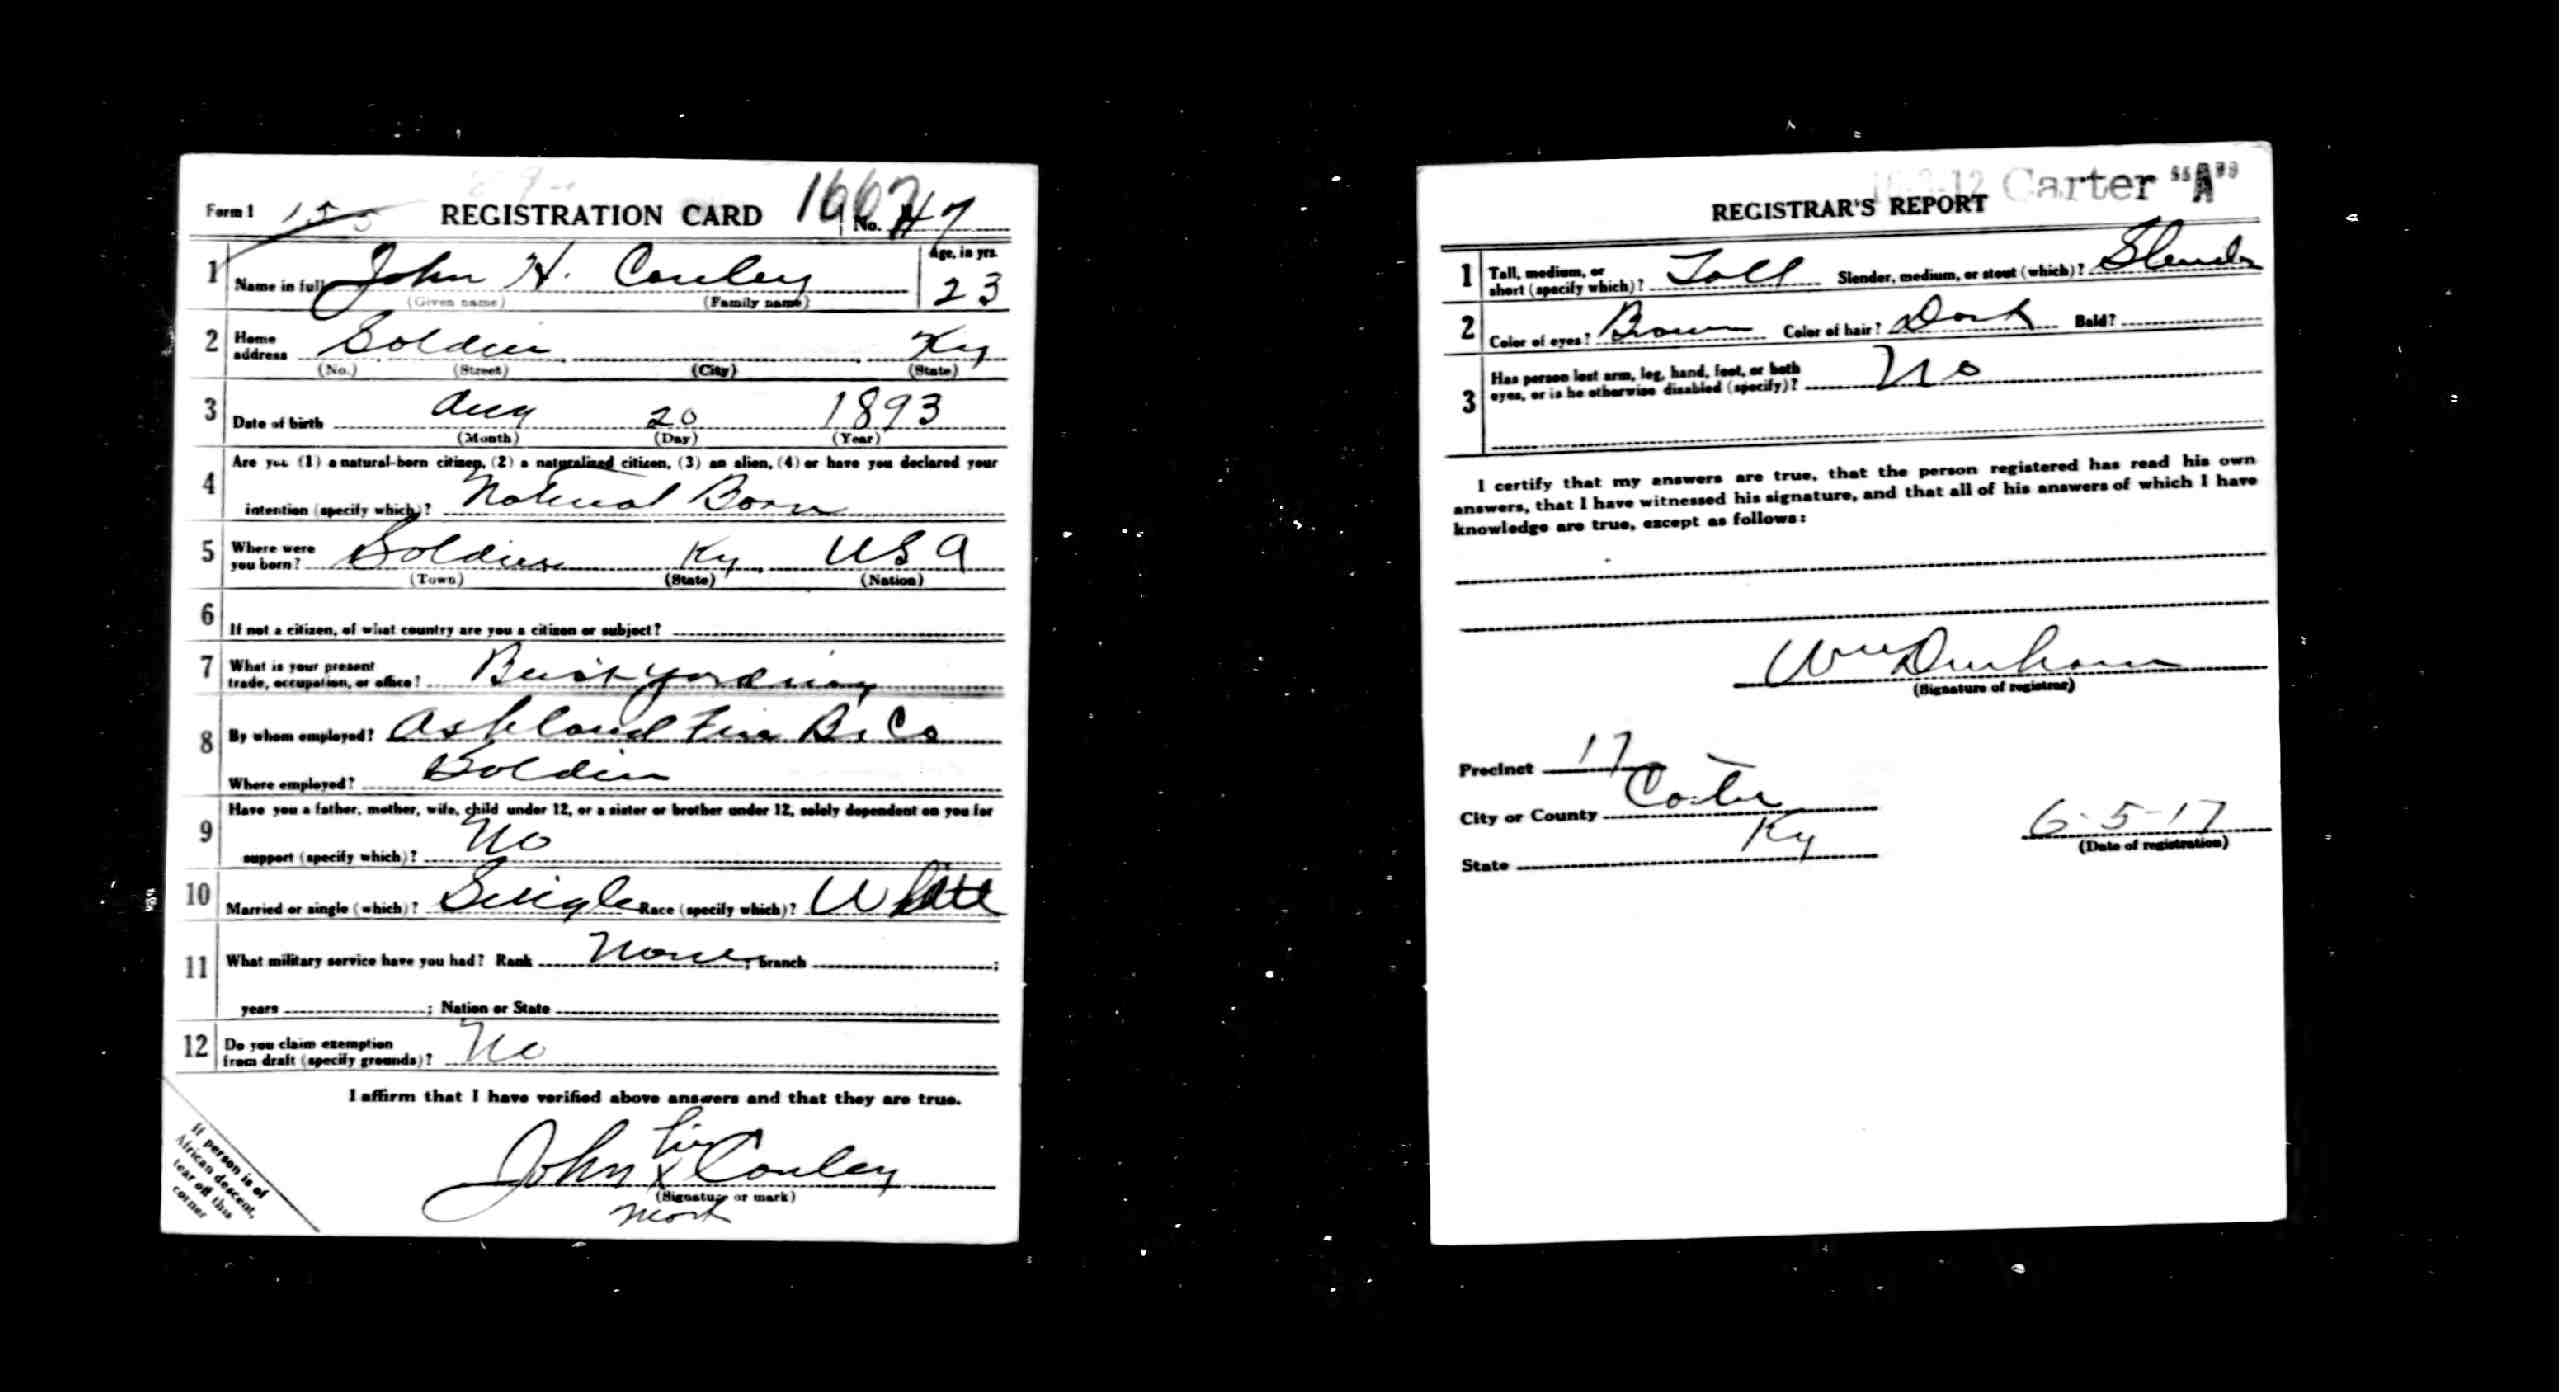 Form 1 155 REGISTRATION CARD 1667 No. 47
1 Name in full John H. Conley Age, in yrs. 23
(Given name) (Family name)
2 Home address Soldier Ky
(No.) (Street) (City) (State)
3 Date of birth Aug 20 1893
(Month) (Day) (Year)
4 Are you (1) a natural-born citizen, (2) a naturalized citizen, (3) an alien, (4) or have you declared your
intention (specify which)? Natural Born
5 Where were you born? Soldier Ky USA
(Town) (State) (Nation)
6 If not a citizen, of what country are you a citizen or subject?
7 What is your present
trade, occupation, or office? Brick yarding
8 By whom employed? Ashland Fire B. Co
Where employed? Soldier
9 Have you a father, mother, wife, child under 12, or a sister or brother under 12, solely dependent on you for
support (specify which)? No
10 Married or single (which)? Single Race (specify which)? White
11 What military service have you had? Rank None ; branch ;
years ; Nation or State
12 Do you claim exemption
from draft (specify grounds)? No
I affirm that I have verified above answers and that they are true.
his
John X Conley
(Signature or mark)
mark
If person is of
African descent,
tear off this
corner
Carter "A"
REGISTRAR'S REPORT
1 Tall, medium, or
short (specify which)? Tall Slender, medium, or stout (which)? Slender
2 Color of eyes? Brown Color of hair? Dark Bald?
3 Has person lost arm, leg, hand, foot, or both
eyes, or is he otherwise disabled (specify)? No
I certify that my answers are true, that the person registered has read his own
answers, that I have witnessed his signature, and that all of his answers of which I have
knowledge are true, except as follows:
Wm Durham
(Signature of registrar)
Precinct 17
City or County Carter
State Ky
6-5-17
(Date of registration)